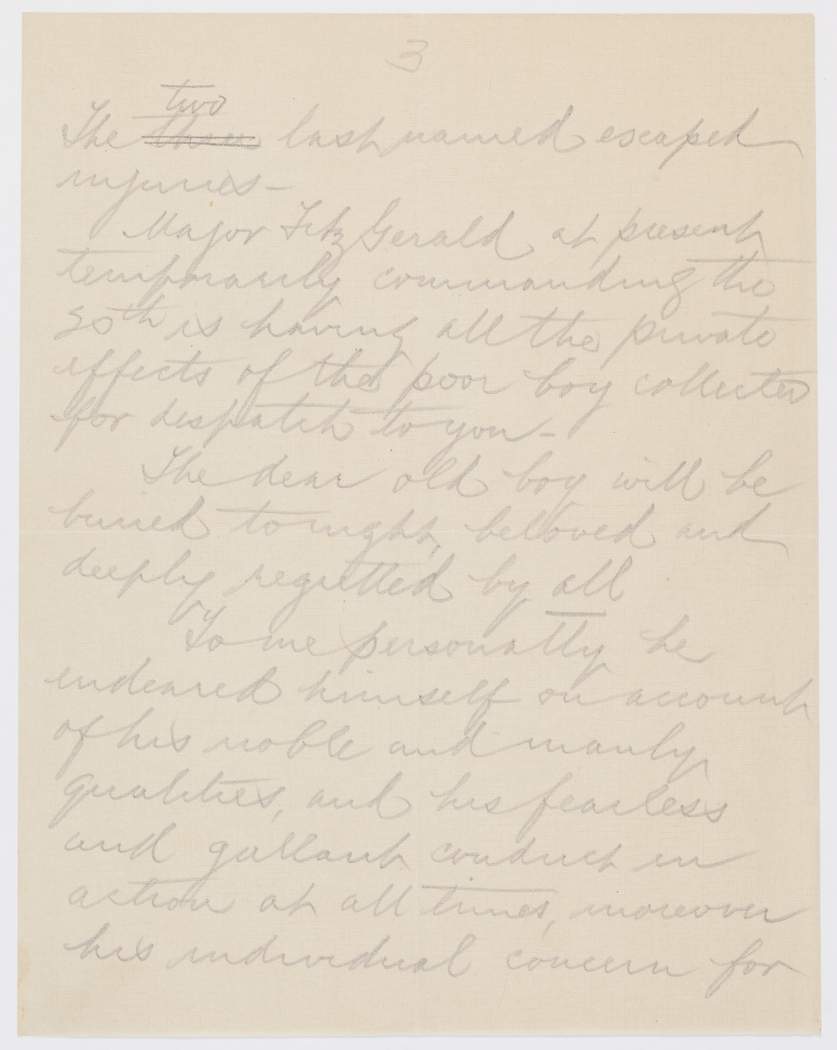 3
two
The three last named escaped
injuries -
Major FitzGerald at present
temporarily commanding the
20th is having all the private
effects of the poor boy collected
for despatch to you -
The dear old boy will be
buried tonight, beloved and
deeply regretted by all
To me personally he
endeared himself on account
of his noble and manly
qualities, and his fearless
and gallant conduct in
action at all times, moreover
his individual concern for